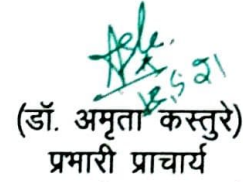 (डॉ. अमृता कस्तुरे)
प्रभारी प्राचार्य